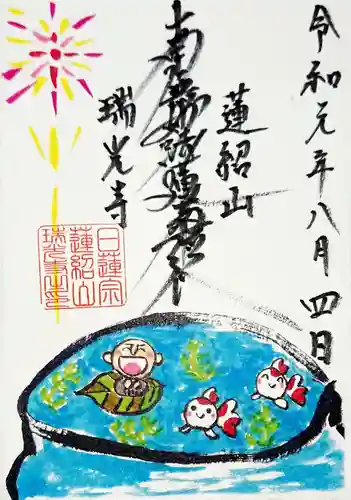 令和元年八月四日
蓮紹山
南無妙法蓮華経
瑞光寺
日蓮宗
蓮紹山
瑞光寺